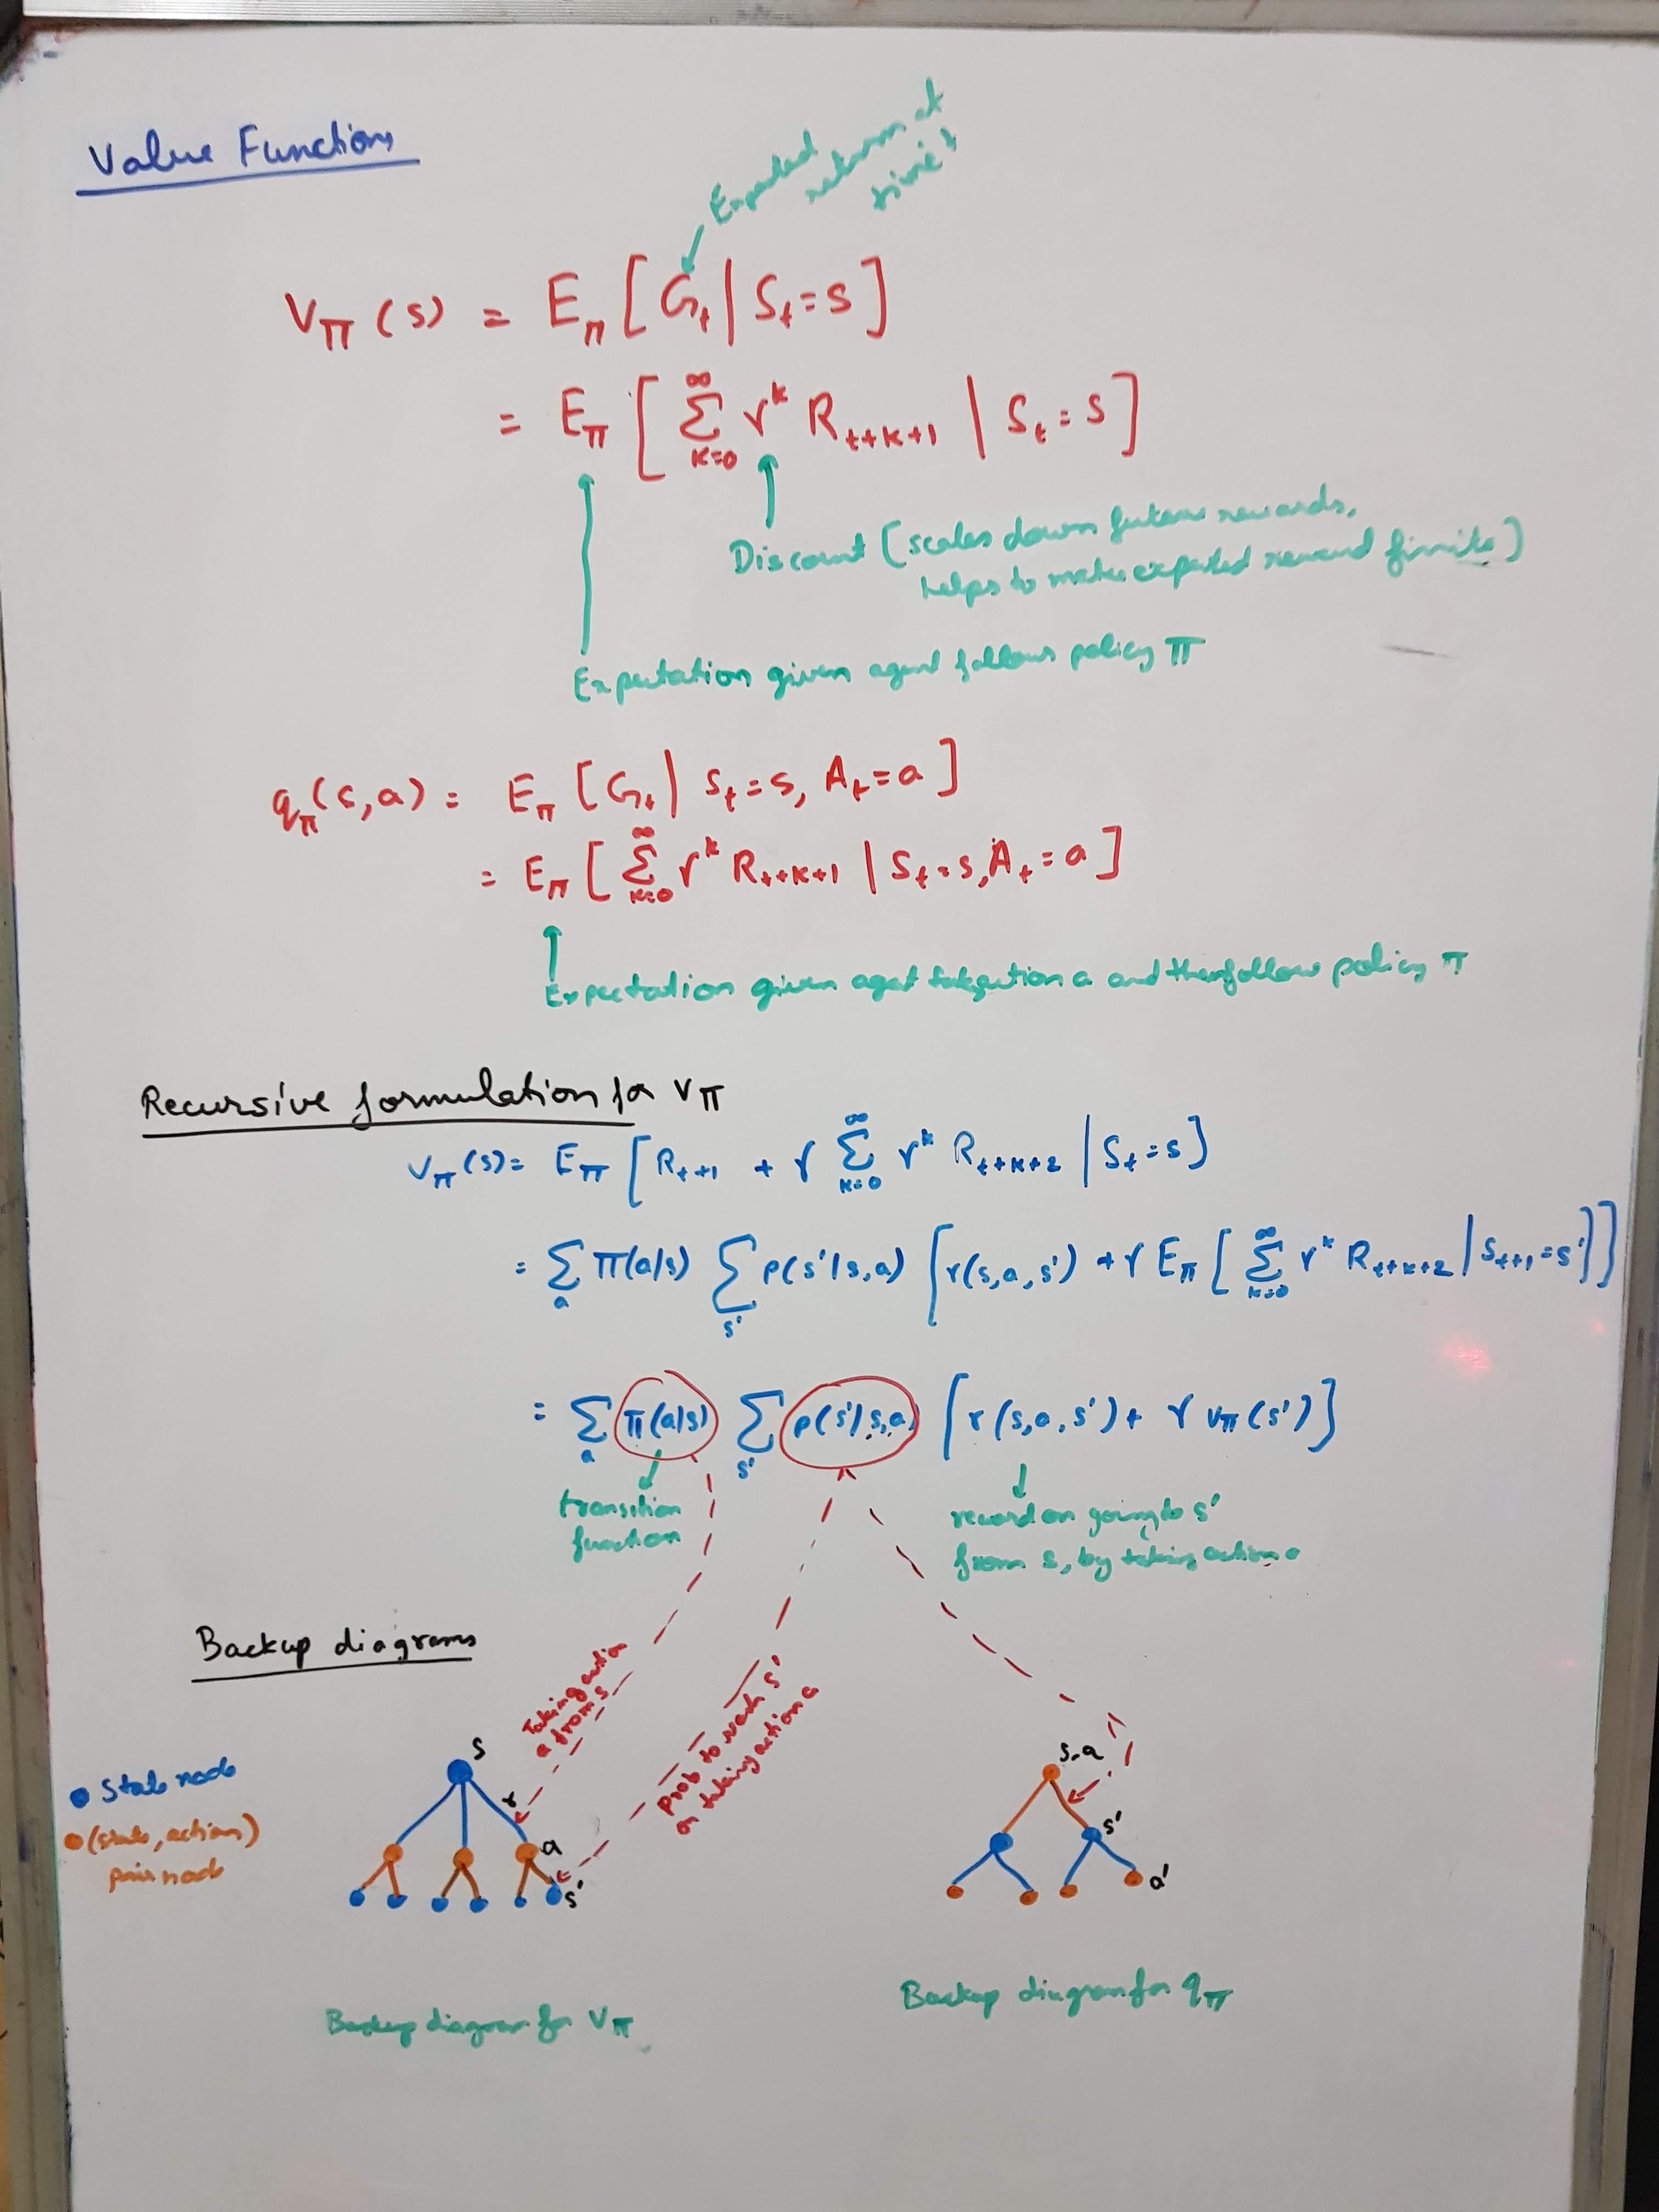 Value Functions
Expected
return at
time t
V_π(s) = E_π[G_t | S_t = s]
= E_π[∑_{k=0}^∞ γ^k R_{t+k+1} | S_t = s]
Discount (scales down future rewards,
helps to make expected reward finite)
Expectation given agent follows policy π
q_π(s,a) = E_π[G_t | S_t = s, A_t = a]
= E_π[∑_{k=0}^∞ γ^k R_{t+k+1} | S_t = s, A_t = a]
Expectation given agent takes action a and then follow policy π
Recursive formulation for V_π
V_π(s) = E_π[R_{t+1} + γ ∑_{k=0}^∞ γ^k R_{t+k+2} | S_t = s]
= ∑_a π(a|s) ∑_{s'} p(s'|s,a) [r(s,a,s') + γ E_π[∑_{k=0}^∞ γ^k R_{t+k+2} | S_{t+1} = s']]
= ∑_a π(a|s) ∑_{s'} p(s'|s,a) [r(s,a,s') + γ V_π(s')]
transition
function
reward on going to s'
from s, by taking action a
Backup diagrams
Taking action
a from s
prob to reach s'
on taking action a
State node
(state, action)
pair node
s
r
a
s'
s,a
s'
a'
Backup diagram for V_π
Backup diagram for q_π